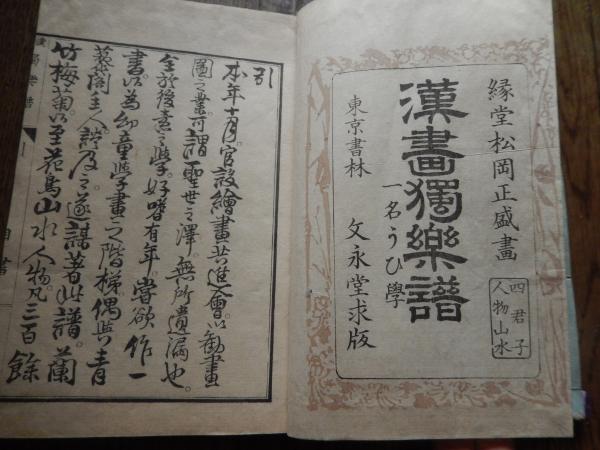 緑堂松岡正盛畫
四君子
人物山水
漢畫獨樂譜
一名うひ學
東京書林
文永堂求版
引
本年十月。官設繪畫共進會。以勸畫
圖之業。可謂聖世之澤無所遺漏也。
余於後素之學。好嗜有年。嘗欲作一
書。以為幼童學畫之階梯。偶與青
藜閣主人。談及之。遂謀著此譜。蘭
竹梅菊。以至花鳥山水人物。凡三百餘